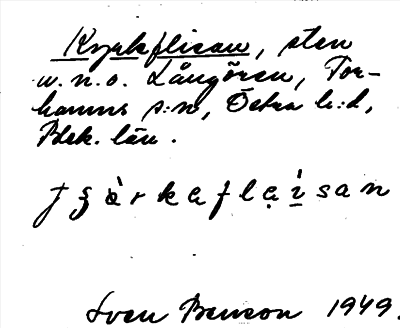 Kyrkflisan, sten
v. n. o. Långören, Tor-
hamns s:n, Östra h:d,
Blek. län.
Sven Benson 1949.